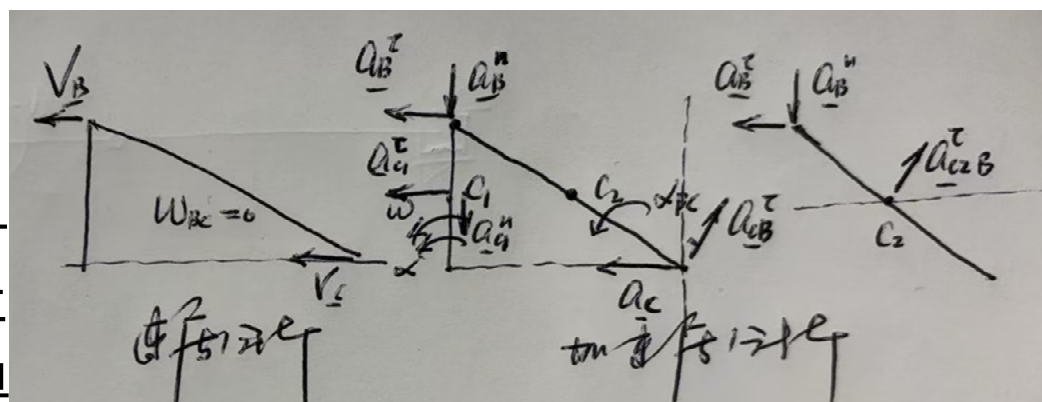 V_B
ω_BC=0
V_C
速度分析
a_B^τ a_B^n
a_C1^τ
ω C_1
a_C1^n
α
C_2 α_BC
a_CB^τ
a_C
加速度分析
a_B^τ a_B^n
a_C2B^τ
C_2